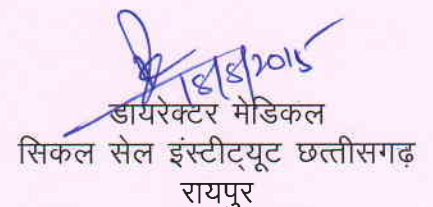 18/8/2015
डायरेक्टर मेडिकल
सिकल सेल इंस्टीट्यूट छत्तीसगढ़
रायपुर